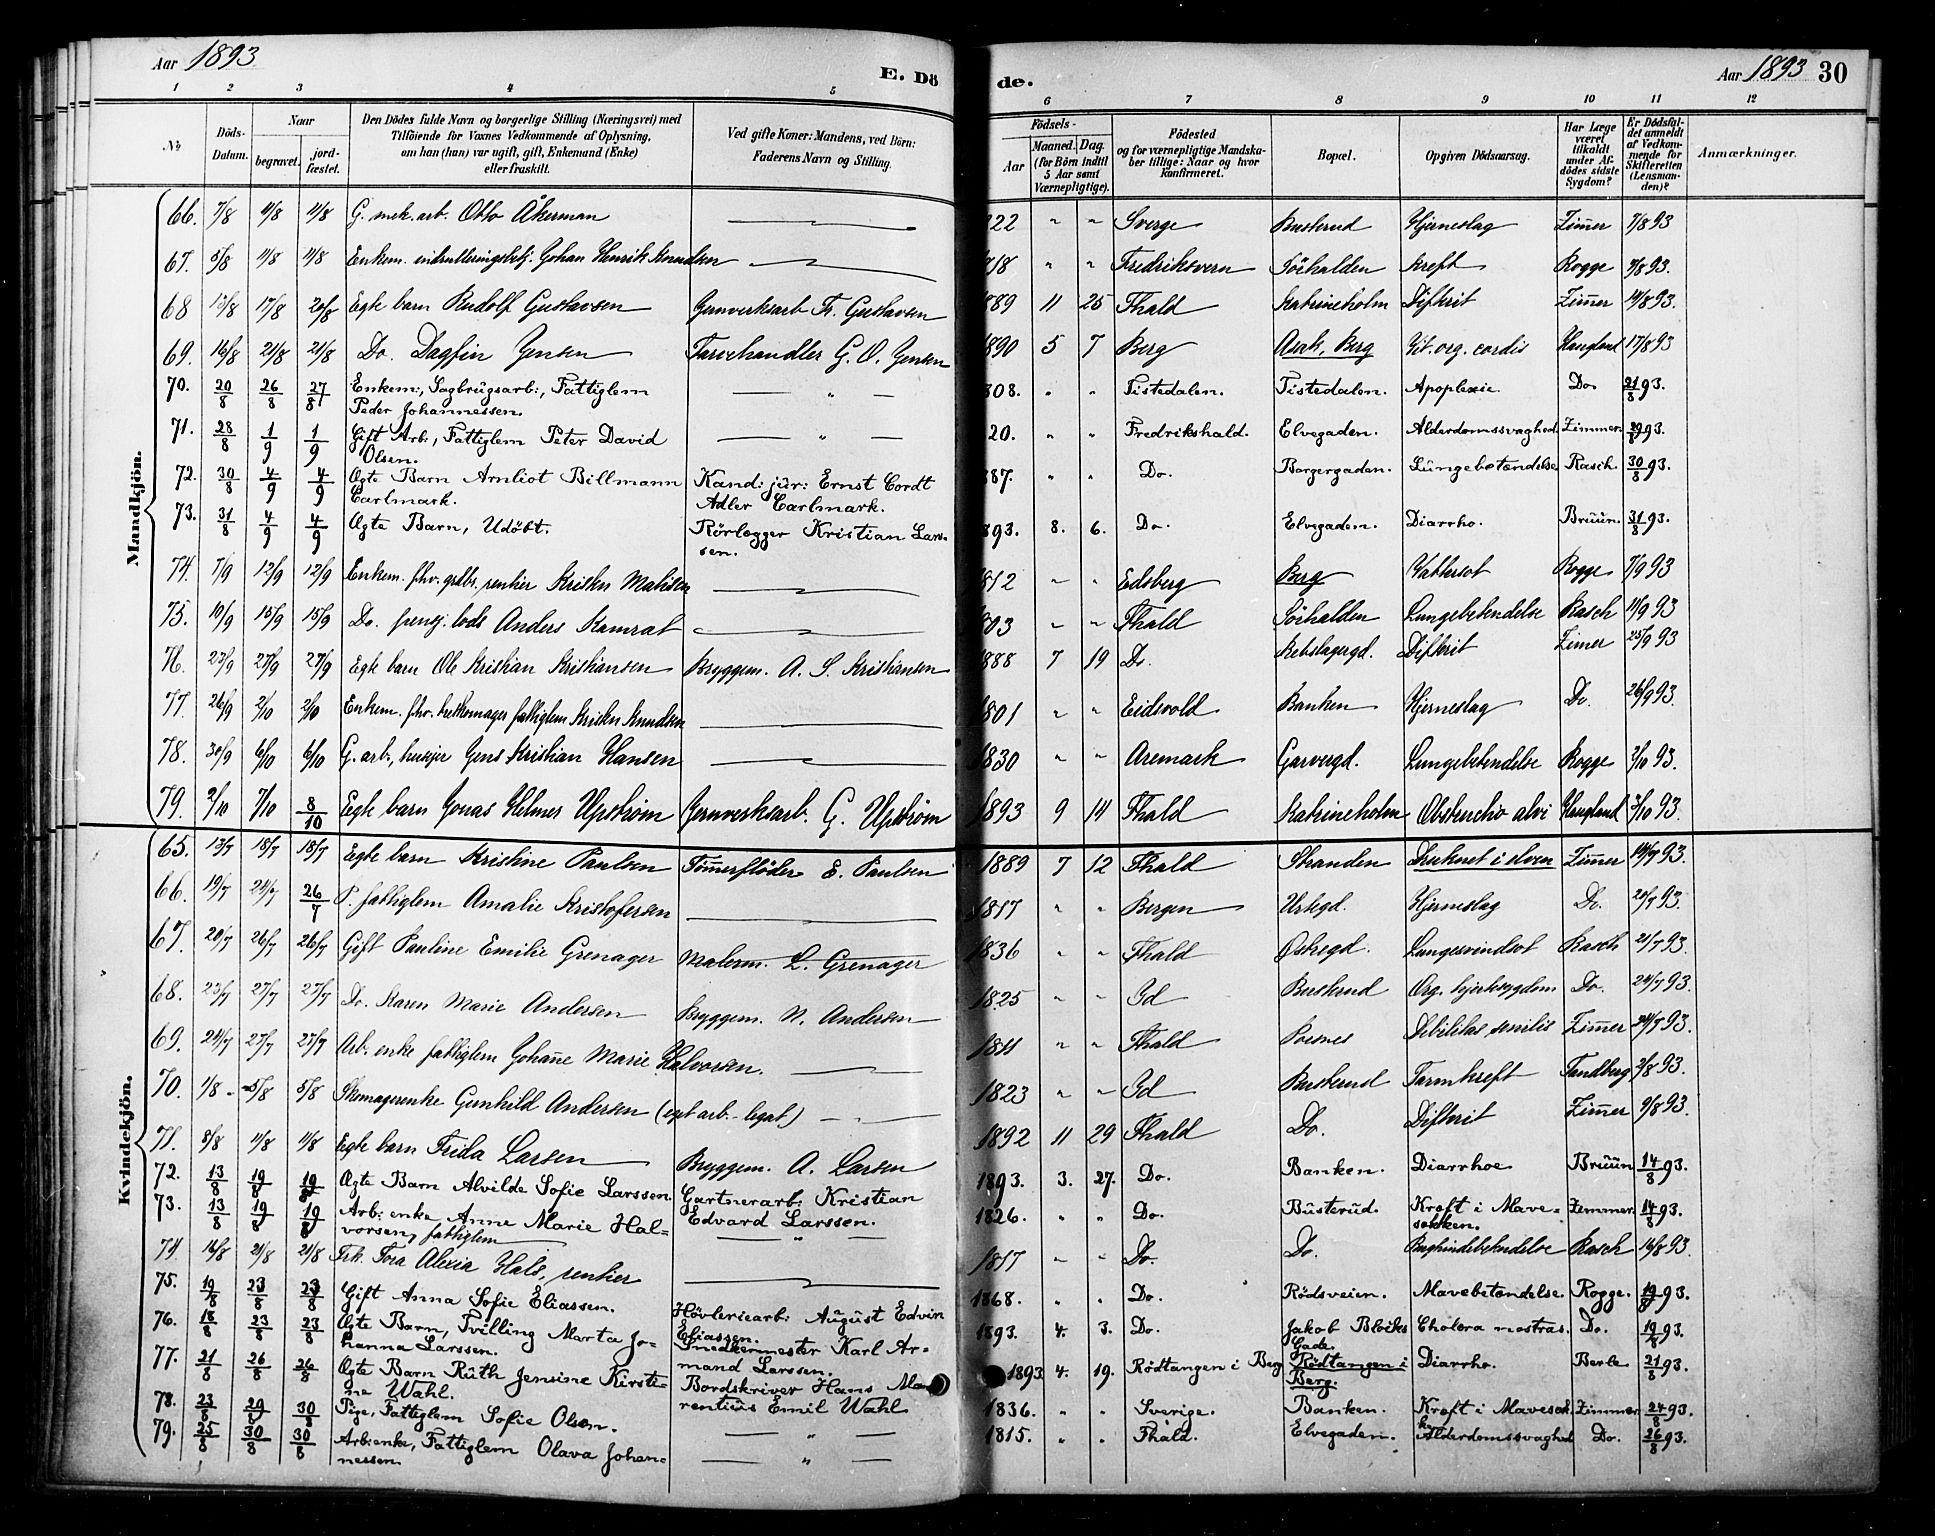 Aar 1893
E. Dö
de.
Aar 1893 30
1 2 3 4 5 6 7 8 9 10 11 12
No
Döds-Datum.
Naar
begravet.
jord-fæstet.
Den Dödes fulde Navn og borgerlige Stilling (Næringsvei) med
Tilföiende for Voxnes Vedkommende af Oplysning,
om han (hun) var ugift, gift, Enkemand (Enke)
eller fraskilt.
Ved gifte Koner: Mandens, ved Börn:
Faderens Navn og Stilling.
Födsels-
Aar
Maaned. Dag.
(for Börn indtil
5 Aar samt
Værnepligtige).
Födested
og for værnepligtige Mandska-
ber tillige: Naar og hvor
konfirmeret.
Bopæl.
Opgiven Dödsaarsag.
Har Læge
været
tilkaldt
under Af-
dödes sidste
Sygdom?
Er Dödsfal-
det anmeldt
af Vedkom-
mende for
Skifteretten
(Lensman-
den)?
Anmærkninger.
Mandkjön.
66. 7/8 11/8 11/8 G. mek. arb. Otto Åkerman 822 " " Sverge Buskrud Hjerneslag Zimer 7/8 93
67. 5/8 11/8 11/8 Enkem. Johan Henrik Knudsen 718 " " Fredriksvern Söihalden kreft Rogge 7/8 93.
68 17/8 20/8 Egte barn Rudolf Gustavsen Gustavsen 889 11 25 Fhald Katrineholm Difterit Zimer 14/8 93.
69. 16/8 21/8 21/8 Do. Dagfin Jensen Farvehandler G. O. Jensen 890 5 7 Berg Asak, Berg Vit. org. cordis Haugland 17/8 93
70. 20/8 26/8 27/8 Enkem:, Sagbrugsarb:, Fattiglem
Peder Johannessen. — " — 808. " " Tistedalen. Tistedalen. Apoplexie. Do. 21/8 93.
71. 28/8 1/9 1/9 Gift Arb:, Fattiglem Peter David
Olsen. — " — 20. " " Fredrikshald. Elvegaden. Alderdomssvaghed. Zimmer. 29/8 93.
72. 30/8 4/9 4/9 Ægte Barn Arnliot Billmann
Carlmark. Kand: jur: Ernst Cordt
Adler Carlmark. 887. " " Do. Borgergaden. Lungebetændelse Rasch. 30/8 93.
73. 31/8 4/9 4/9 Ægte Barn, Udöbt. Rörlægger Kristian Lars-
sen. 893. 8. 6. Do. Elvegaden. Diarrho. Bruun. 31/8 93.
74. 7/9 12/9 12/9 Enkem. fhv. grdbr. rentier Kristen Mathisen 1812 " " Edsberg Berg Vattersot Rogge 7/9 93
75. 10/9 15/9 15/9 Do. pensj. lods Anders Kamrat 1803 " " Fhald Söihalden Lungebetendelse Rasch 11/9 93
76. 23/9 27/9 27/9 Egte barn Ole Kristian Kristiansen Bryggem. A. S. Kristiansen 1888 7 19 Do. Rebslagergd. Difterit Zimer 25/9 93
77. 26/9 2/10 2/10 Enkem. fhv. fattiglem Kristen Knudsen 1801 " " Eidsvold Banken Hjerneslag Do. 26/9 93.
78. 30/9 6/10 6/10 G. arb., husejer Jens Kristian Hansen 1830 " " Aremark Garvergd. Lungebetendelse Rogge 2/10 93.
79. 2/10 7/10 8/10 Egte barn Jonas Helmer Upström Jernverksarb. G. Upström 1893 9 14 Fhald Katrineholm Obstructio alvi Haugland 3/10 93.
Kvindekjön.
65. 13/7 18/7 18/7 Egte barn Kristine Paulsen Tömerflöder E. Paulsen 1889 7 12 Fhald Stranden Druknet i elven Zimer 14/7 93.
66. 19/7 24/7 26/7 P. fattiglem Amalie Kristofersen 1817 " " Bergen Urtegd. Hjerneslag Do. 20/7 93.
67. 20/7 26/7 26/7 Gift Pauline Emilie Grenager Malerm. L. Grenager 1836 " " Fhald Ostregd. Lungesvindsot Rasch 21/7 93.
68. 23/7 27/7 27/7 Do. Karen Marie Andersen Bryggem. N. Andersen 1825 " " Id Buskrud Org. hjertesygdom Do. 24/7 93.
69. 24/7 27/7 27/7 Arb. enke fattiglem Johane Marie Halvorsen. 1811 " " Fhald Porsnes Debilitas senilis Zimer 24/7 93.
70. 1/8 5/8 5/8 Skomagerenke Gunhild Andersen (eget arb. - legat) 1823 " " Id Buskrud Tarmkreft Tandberg 3/8 93.
71. 8/8 11/8 11/8 Egte barn Frida Larsen Bryggem. A. Larsen 1892 11 29 Fhald Do. Difterit Zimer 9/8 93.
72. 13/8 19/8 19/8 Ægte Barn Alvilde Sofie Larssen Gartnerarb: Kristian
Edvard Larssen. 1893. 3. 27. Do. Banken. Diarrhoe Bruun 14/8 93.
73. 13/8 19/8 19/8 Arb: enke Anne Marie Hal-
vorsen, fattiglem — " — 1826. " " Do. Busterud. Kræft i Mave-
sækken. Zimmer. 14/8 93.
74. 16/8 21/8 21/8 Frk. Tora Alexia Hals, rentier 1817 " " Do. Do. Bughindebetendelse Rasch 16/8 93
75. 19/8 23/8 23/8 Gift Anna Sofie Eliassen. Hövleriearb: August Edvin
Eliassen. 1868. " " Do. Rödsveien. Mavebetændelse. Rogge. 19/8 93.
76. 18/8 23/8 23/8 Ægte Barn, Tvilling Marta Jo-
hanna Larssen. Snedkermester Karl Ar-
mand Larssen. 1893. 4. 3. Do. Jakob Bloiks
Gade. Cholera nostras. Do. 19/8 93.
77. 21/8 26/8 26/8 Ægte Barn Ruth Jensine Kirsti-
ne Wahl. Bordskriver Hans
rentius Emil Wahl 1893 4. 19. Rödtangen i Berg Rödtangen i
Berg. Diarrho. Berle 21/8 93.
78. 23/8 29/8 30/8 Pige, Fattiglem Sofie Olsen. — " — 1836. " " Sverige. Banken. Kræft i Mavesæk-
ken Zimmer. 24/8 93.
79. 25/8 30/8 30/8 Arb:enke, Fattiglem Olava Johan-
nessen. — " — 1815. " " Fhald. Elvegaden. Alderdomssvaghed Do. 26/8 93.